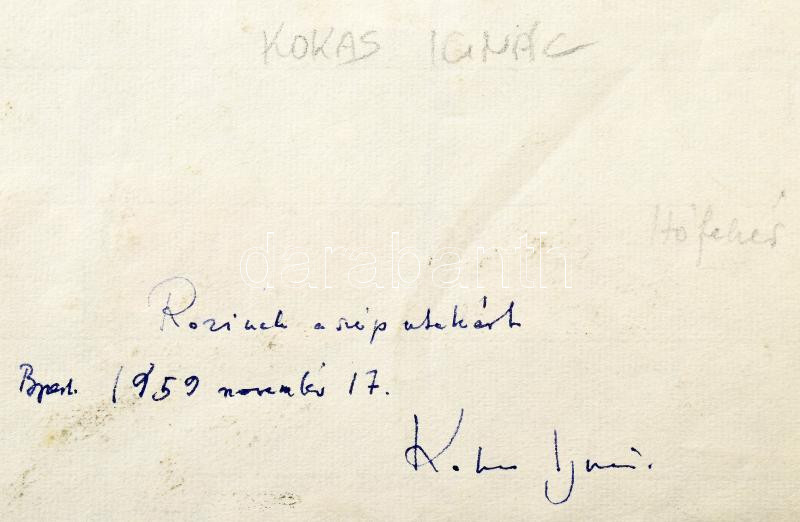 KOKAS IGNÁC
Hófehér
darabanth
Rozinak a szép utakért
Bpest. 1959 november 17.
Kokas Ignác.